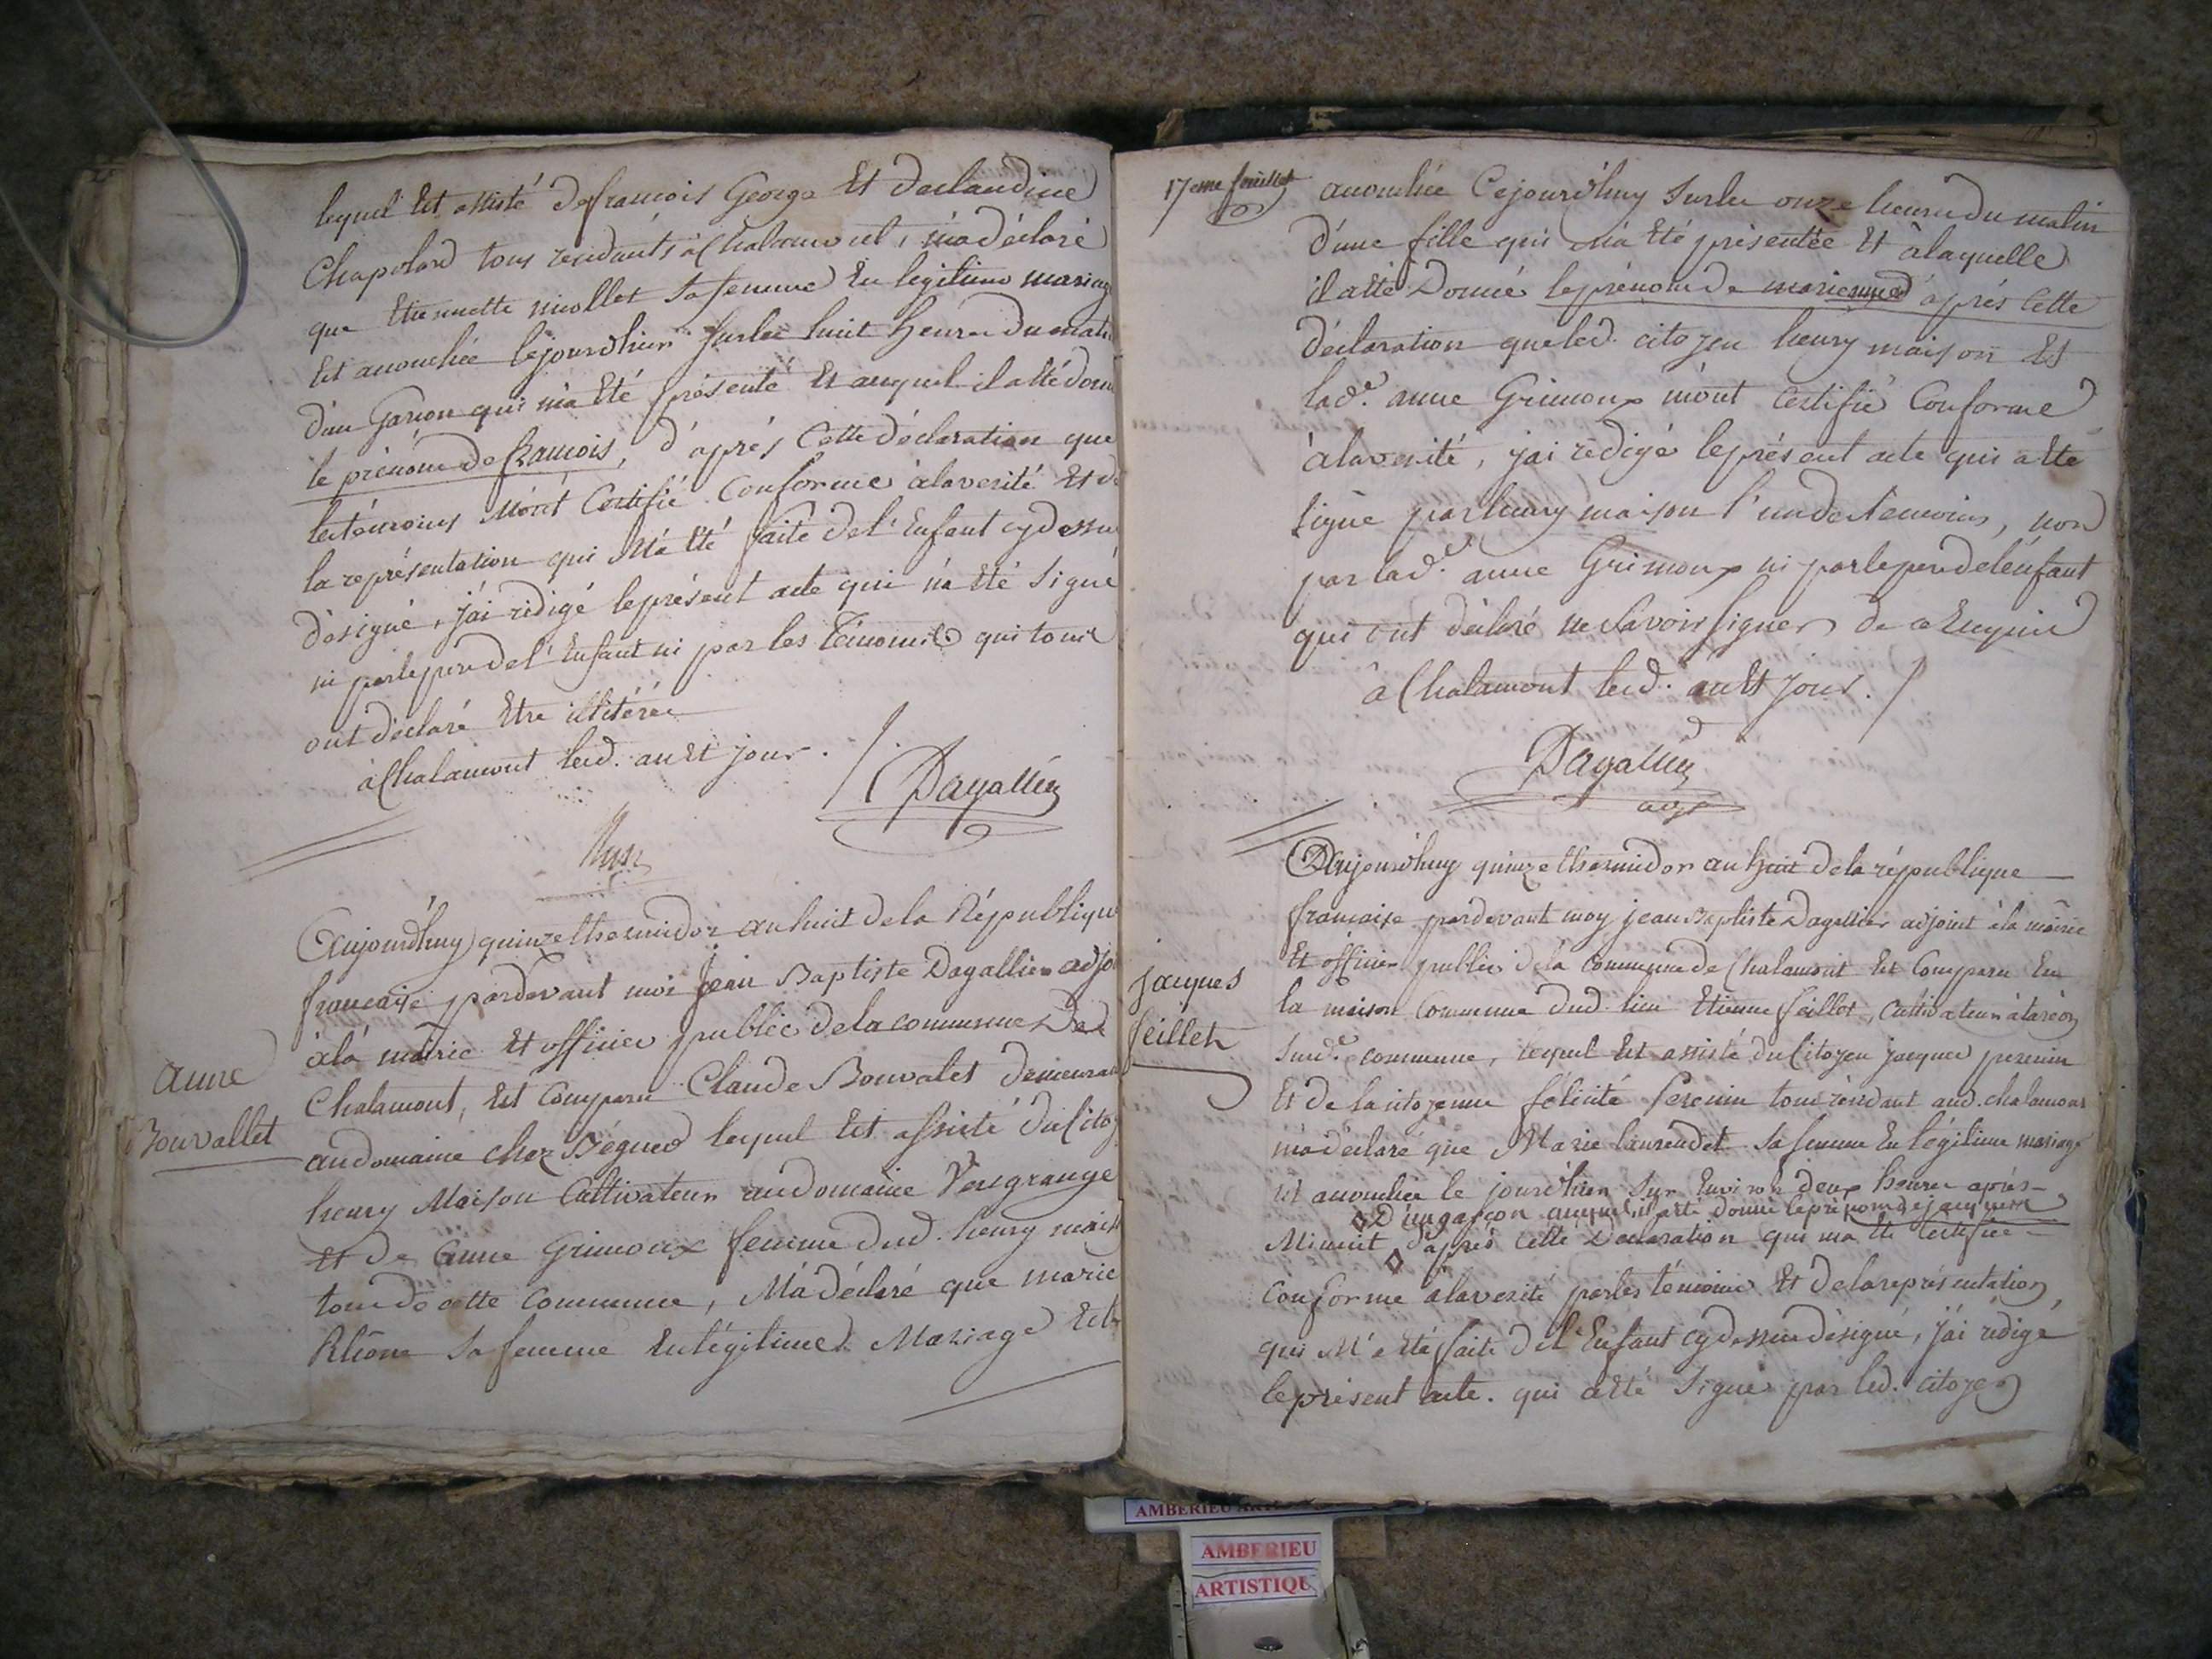 lequel Est assisté de francois George Et declaudine
Chapoland tous residants a Chalamont, m'a déclaré
que Etiennette niollet sa femme En legitime mariag
Est accouchée lejourdhier surles huit heures dumatin
d'un Garson qui m'a Eté présenté Et auquel il a Eté donn
le prénom de francois, d'aprés Cette déclaration que
les témoins M'ont Certifié Conforme àlaverité Et d
la représentation qui M'a Eté faite del'Enfant cydessu
désigné, j'ai redigé leprésent acte qui n'a Eté signé
ni parlepere del'Enfant ni par les Témoins qui tous
ont déclaré Etre illitérés
à Chalamont lesd. an Et jour.
Dagallier
Aujourdhuy quinze thermidor an huit dela République
francaise pardevant moi Jean Baptiste Dagallier adjo
àla mairie Et officier public dela commune De
Chalamont, Est Comparu Claude Bouvalet demeuran
audomaine chez Bégued lequel Est assisté ducitoy
henry Maison Cultivateur audomaine Versgrange
Et de Anne Grimoux femme dud. henry mais
tous de cette Commune, M'a déclaré que marie
Rhône sa femme En légitime Mariage Est
anne
Bouvallet
17eme feuillet
accouchée Cejourd'huy Surles onze heures du matin
d'une fille qui m'a Eté présentée Et àlaquelle
il a Eté Donné leprénom de marianne d'aprés Cette
déclaration queled. citoyen henry maison Et
lad.e anne Grimoux m'ont Certifié Conforme
àlaverité, j'ai redigé leprésent acte qui a Eté
signé parhenry maison l'un des temoins, non
par lad.e anne Grimoux ni parleperedelenfant
qui ont déclaré ne Savoir signer de ce Enquis
à Chalamont lesd. an Et jour.
Dagallier
adjt
Aujourdhuy quinze thermidor an huit dela république
francaise pardevant moy jean Baptiste Dagallier adjoint àla mairie
Et officier public dela Commune de Chalamont Est Comparu En
la maison Commune dud. lieu Etienne feillet, Cultivateur
Sud.e commune, lequel Est assisté ducitoyen jacques perenin
Et de la citoyenne félicité Perenin tous residant aud. chalamont
m'a déclaré que Marie laurendet sa femme En légitime mariage
Est accouchée le jourdhier Sur Environ deux heures après
D'un garçon auquel il a Eté donné leprénom de jacques
Minuit d'après cette Declaration qui m'a Eté certifiée
Conforme àlaverité parles témoins Et delareprésentation
qui M'a Eté faite del'Enfant cydessus désigné, j'ai rédigé
leprésent acte. qui a Eté signé par led. citoyen
jacques
feillet
AMBERIEU
AMBERIEU
ARTISTIQU